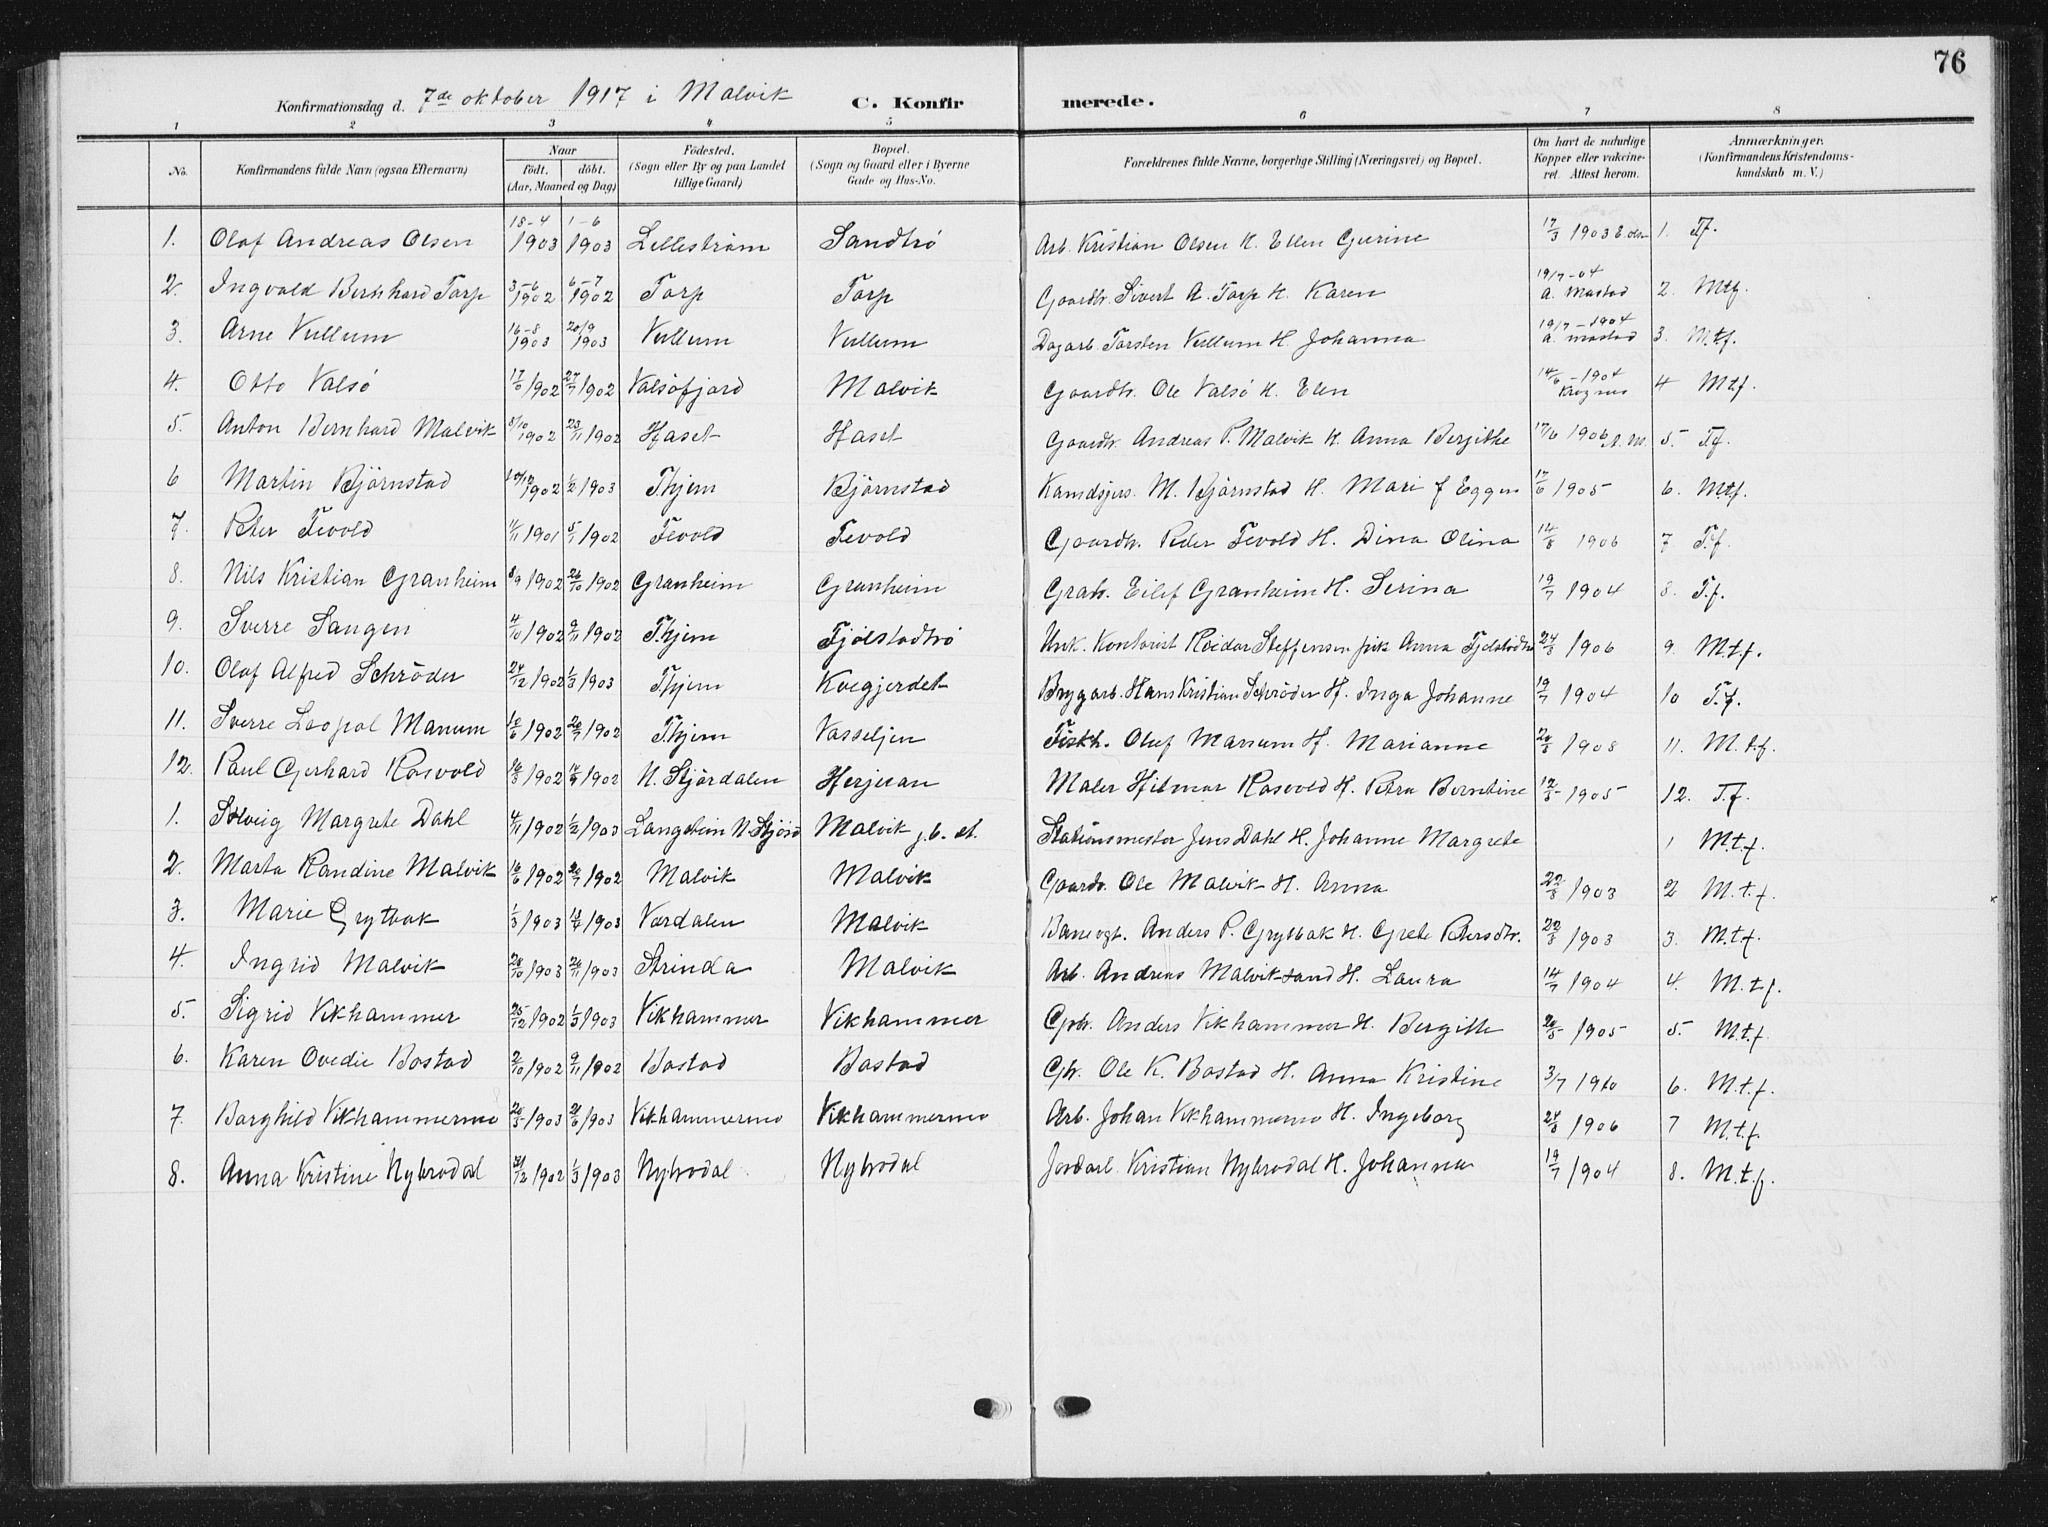 76
Konfirmationsdag d. 7de oktober 1917 i Malvik C. Konfirmerede.
1 2 3 4 5 6 7 8
No. Konfirmandens fulde Navn (ogsaa Efternavn) Naar født. døbt. (Aar, Maaned og Dag) Fødested. (Sogn eller By og paa Landet tillige Gaard) Bopæl. (Sogn og Gaard eller i Byerne Gade og Hus-No. Forældrenes fulde Navne, borgerlige Stilling (Næringsvei) og Bopæl. Om havt de naturlige Kopper eller vakcineret. Attest herom. Anmærkninger. (Konfirmandens Kristendomskundskab m. V.)
1. Olaf Andreas Olsen 18-4 1903 1-6 1903 Lillestrøm Sandtrö Arb. Kristian Olsen H. Ellen Gurine 17/3 1903 E. Olsen 1. T.f.
2. Ingvald Bernhard Torp 3-6 1902 6-7 1902 Torp Torp Gaardb. Sivert A. Torp H. Karen 19/7-04 A. Mostad 2. Mtf.
3. Arne Vullum 16-8 1903 20/9 1903 Vullum Vullum Dagarb. Torsten Vullum H Johanna 19/7-1904 A. Mostad 3. M.t.f.
4. Otto Valsö 1902 27/7 1902 Valsöfjord Malvik Gaardb. Ole Valsö H. Elen 14/6-1904 4 Mtf.
5. Anton Bernhard Malvik 8/10 1902 23/11 1902 Haset Haset Gaardb. Andreas P. Malvik H. Anna Bergithe 17/6 1906 A. M. 5. Tf.
6 Martin Björnstad 1902 1/2 1903 Thjem Björnstad M. Björnstad H. Mari f Eggen 17/6 1905 6. Mtf.
7. Peter Fevold 4/11 1901 5/1 1902 Fevold Fevold Gaardb. Peder Fevold H. Dina Olina 14/8 1906 7 T.f.
8. Nils Kristian Granheim 8/9 1902 26/10 1902 Granheim Granheim Grab. Eilef Granheim H. Serina 19/7 1904 8. T.f.
9. Sverre Sangen 4/10 1902 9/11 1902 Thjem Fjölstadtrö Unk. Kontorist Reidar Steffensen pik Anna Fjelstadtrö 24/8 1906 9. M.t.f.
10. Olaf Alfred Schröder 24/12 1902 1/3 1903 Thjem Kvegjerdet Brygarb. Hans Kristian Schröder H. Inga Johanne 19/7 1904 10 T.f.
11. Sverre Leopol Manum 10/6 1902 20/7 1902 Thjem Vasseljen Fiskh. Oluf Manum H. Marianne 20/8 1908 11. M.t.f.
12. Paul Gerhard Rosvold 16/3 1902 1902 N. Stjördalen Herjuan Maler Hilmar Rosvold H. Petra Berntine 1905 12. T.f.
1. Solveig Margrete Dahl 4/11 1902 1/2 1903 Langstein N. Stjörd Malvik j.b. st. Stationsmester Jens Dahl H. Johanne Margrete 1 M.t.f.
2. Marta Randine Malvik 16/6 1902 20/7 1902 Malvik Malvik Gaardb. Ole Malvik H. Anna 22/8 1903 2 M.t.f.
3. Marie Grytbak 1/3 1903 1903 Værdalen Malvik Banevgt. Anders P. Grytbak H. Grete Petersdtr. 22/8 1903 3. M.t.f.
4. Ingrid Malvik 28/10 1903 1903 Strinda Malvik Arb. Andreas Malviksand H. Laura 14/7 1904 4. M.t.f.
5. Sigrid Vikhammer 25/12 1902 1/3 1903 Vikhammer Vikhammer Grb. Anders Vikhammer H. Bergitte 1905 5. M.t.f.
6. Karen Ovedie Bostad 2/10 1902 9/11 1902 Bostad Bostad Gb. Ole K. Bostad H. Anna Kristine 3/7 1910 6. M.t.f.
7. Borghild Vikhammermo 1903 21/6 1903 Vikhammermo Vikhammermo Arb. Johan Vikhammermo H. Ingeborg 24/8 1906 7 M.t.f.
8. Anna Kristine Nybrodal 1902 1/3 1903 Nybrodal Nybrodal Jordarb. Kristian Nybrodal H. Johanna 19/7 1904 8. M.t.f.